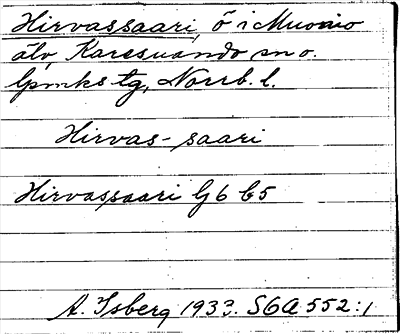 Hirvassaari, ö i Muonio
älv, Karesuando sn o.
lpmks tg, Norrb. l.
Hirvas-saari
Hirvassaari G6 b5
A. Isberg 1933. SGA 552:1